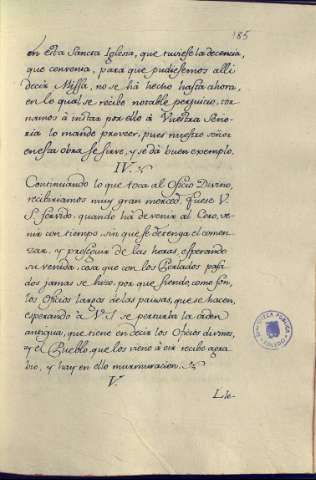 185
en esta Sancta Iglesia, que tuviese la decencia,
que convenia, para que pudiesemos alli
decir Missa, no se há hecho hasta ahora,
en lo qual se recibe notable perjuicio, tor
namos à instar por ello à Vuestra Seño-
ria lo mande proveer, pues nuestro señor
en esta obra se sirve, y se dà buen exemplo.
IV.
Continuando lo que toca al Oficio Divino,
recibiriamos muy gran merced, fuese V.
S. servido, quando há de venir al Coro, ve-
nir con tiempo sin que se detenga el comen
zar, y proseguir de las horas, esperando
su venida, cosa que con los Perlados pasa
dos jamas se hizo, por que siendo, como son,
los Oficios largos de las pausas, que se hacen,
esperando à V. S. se perturba la orden
antigua, que tiene en decir los Oficios divinos,
y el Pueblo, que los viene à oir recibe agra
bio, y hay en ello murmuracion.
V.
Lle-